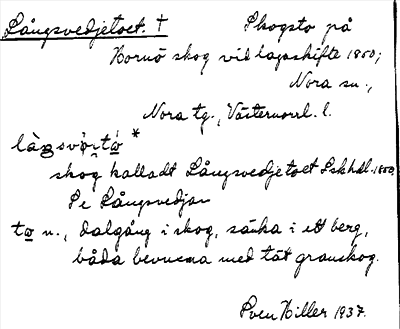 Långsvedjetoet. † Skogsto på
Hornö skog vid lagaskifte 1850;
Nora sn.,
Nora tg., Västernorrl. l.
skog kalladt Långsvedjetoet Lskhdl. 1850
Se Långsvedjan
to n., dalgång i skog, sänka i ett berg,
båda bevuxna med tät granskog.
Sven Hiller 1937.